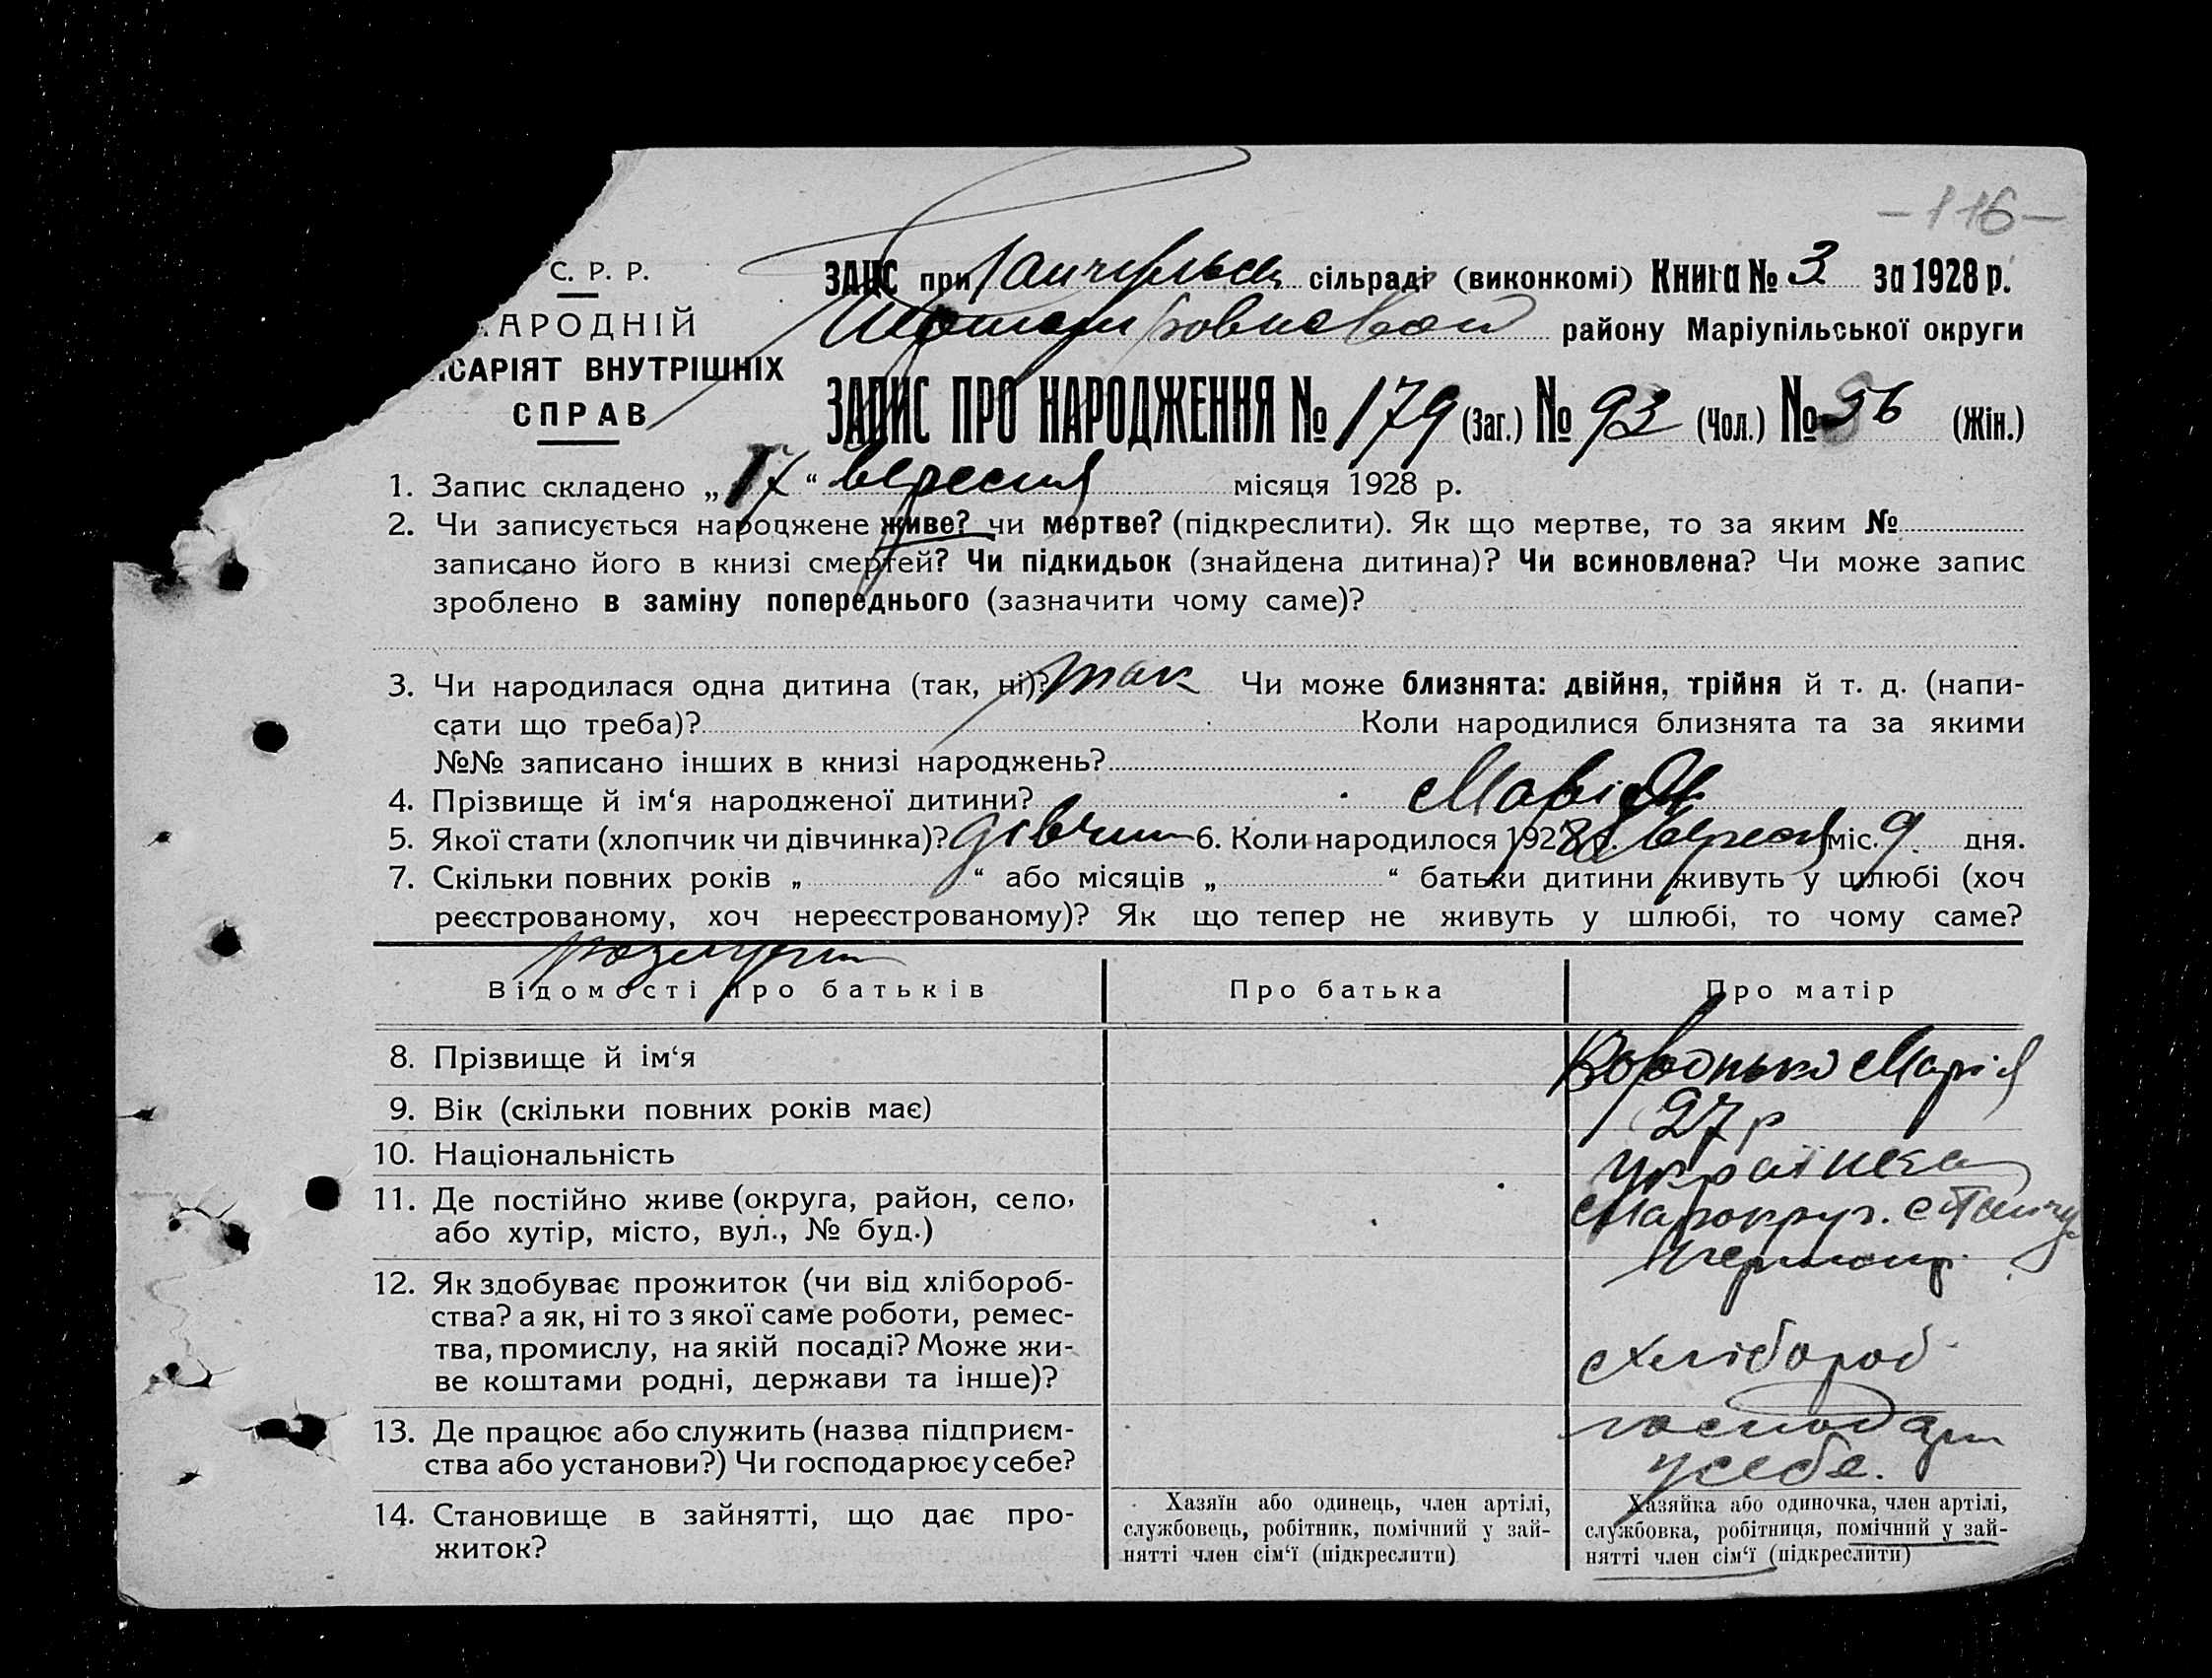 – 116 –
С. Р. Р.
АРОДНІЙ
САРІЯТ ВНУТРІШНІХ
СПРАВ
ЗАПС при сільраді (виконкомі) Книга № 3 за 1928 р.
району Маріупільської округи
ЗАПИС ПРО НАРОДЖЕННЯ № 179 (Заг.) № 93 (Чол.) № 86 (Жін.)
1. Запис складено „17“ вересня місяця 1928 р.
2. Чи записується народжене живе? чи мертве? (підкреслити). Як що мертве, то за яким №
записано його в книзі смертей? Чи підкидьок (знайдена дитина)? Чи всиновлена? Чи може запис
зроблено в заміну попереднього (зазначити чому саме)?
3. Чи народилася одна дитина (так, ні)? так Чи може близнята: двійня, трійня й т. д. (напи-
сати що треба)? Коли народилися близнята та за якими
№№ записано інших в книзі народжень?
4. Прізвище й ім‘я народженої дитини? Марія
5. Якої стати (хлопчик чи дівчинка)? дівчин 6. Коли народилося 1928 р. вересня міс. 9 дня.
7. Скільки повних років „ “ або місяців „ “ батьки дитини живуть у шлюбі (хоч
реєстрованому, хоч нереєстрованому)? Як що тепер не живуть у шлюбі, то чому саме?
Відомості про батьків Про батька Про матір
8. Прізвище й ім‘я Воронько Марія
9. Вік (скільки повних років має) 27 р
10. Національність українка
11. Де постійно живе (округа, район, село,
або хутір, місто, вул., № буд.)
12. Як здобуває прожиток (чи від хлібороб-
ства? а як, ні то з якої саме роботи, ремес-
тва, промислу, на якій посаді? Може жи-
ве коштами родні, держави та інше)? Хлібороб
13. Де працює або служить (назва підприєм-
ства або установи?) Чи господарює у себе? господар у себе.
14. Становище в зайнятті, що дає про-
житок?
Хазяїн або одинець, член артілі,
службовець, робітник, помічний у зай-
нятті член сім‘ї (підкреслити)
Хазяйка або одиночка, член артілі,
службовка, робітниця, помічний у зай-
нятті член сім‘ї (підкреслити)